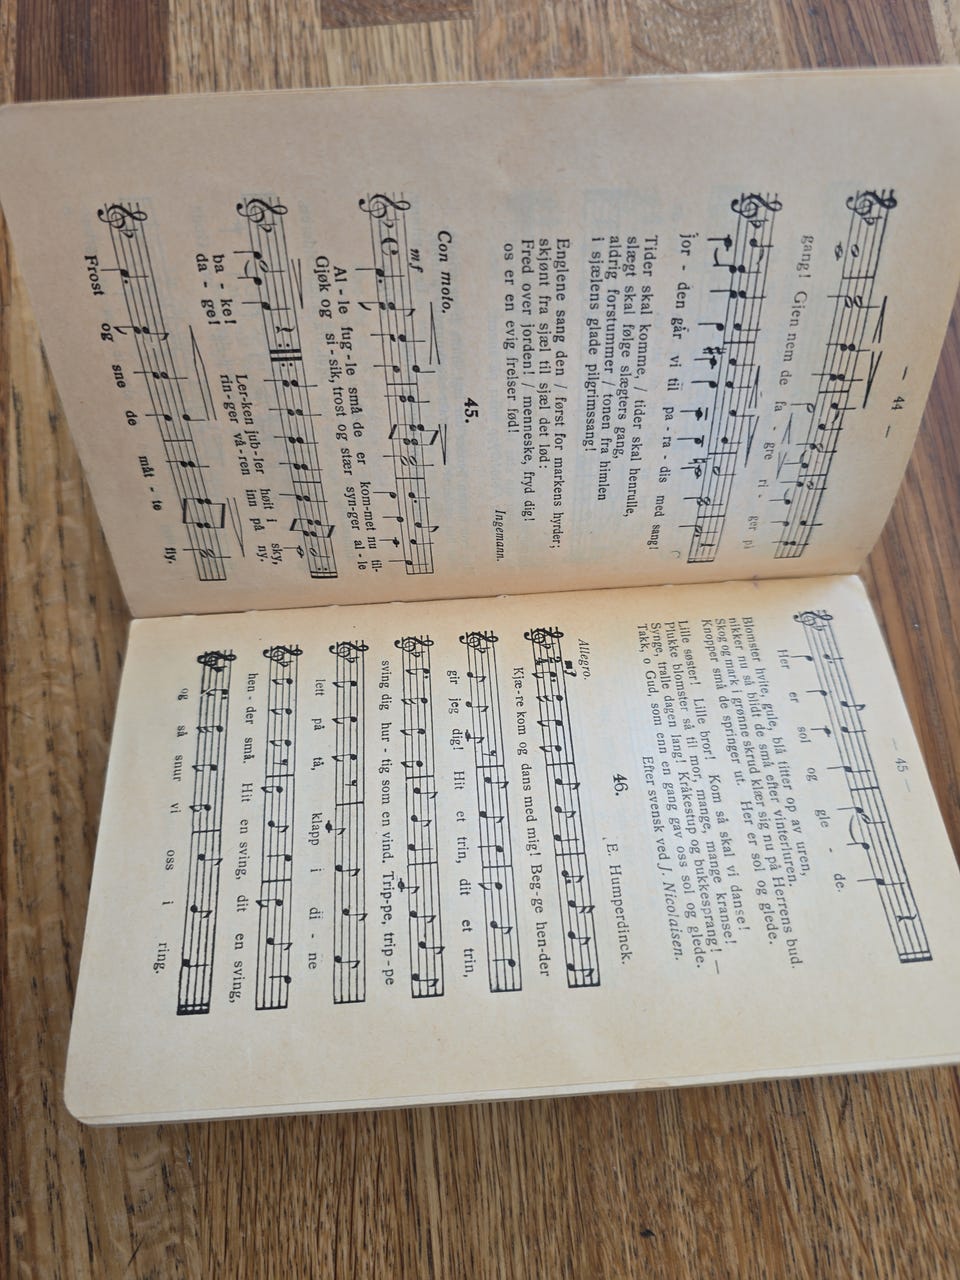 — 44 —
gang! Gjen nem de fa - gre ri - ger på
jor - den går vi til pa - ra - dis med sang!
Tider skal komme, / tider skal henrulle,
slægt skal følge slægters gang,
aldrig forstummer / tonen fra himlen
i sjælens glade pilgrimssang!
Englene sang den / først for markens hyrder;
skjønt fra sjæl til sjæl det lød:
Fred over jorden! / menneske, fryd dig!
os er en evig frelser fød!
Ingemann.
45.
Con moto.
mf
Al - le fug - le små de er kom-met nu til-
Gjøk og si - sik, trost og stær syn-ger al - le
ba - ke! Ler-ken jub-ler høit i sky,
da - ge! rin-ger vå-ren inn på ny.
Frost og sne de måt - te fly,
— 45 —
Her er sol og gle - de.
Blomster hvite, gule, blå titter op av uren,
nikker nu så blidt de små efter vinterluren.
Skog og mark i grønne skrud klær sig nu på Herrens bud.
Knopper små de springer ut. Her er sol og glede.
Lille søster! Lille bror! Kom så skal vi danse!
Plukke blomster så til mor, mange, mange kranse!
Synge, tralle dagen lang! Kråkestup og bukkesprang! —
Takk, o Gud, som enn en gang gav oss sol og glede.
Efter svensk ved J. Nicolaisen.
46.
E. Humperdinck.
Allegro.
Kjæ-re kom og dans med mig! Beg-ge hen-der
gir jeg dig! Hit et trin, dit et trin,
sving dig hur - tig som en vind. Trip-pe, trip - pe
lett på tå, klapp i di - ne
hen - der små. Hit en sving, dit en sving,
og så snur vi oss i ring.